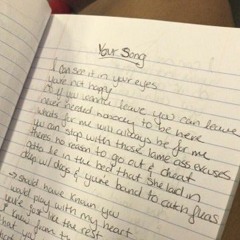 Your Song
I can see it in your eyes
you're not happy
so if you wanna leave you can leave
never needed nobody to be here
whats for me will always be for me
you can stop with those lame ass excuses
theres no reason to go out & cheat
gotta lie in the bed that she laid in
sleep w/ dogs & you're bound to catch fleas
→ should have known you
would play with my heart
you're just like the rest
I knew from the